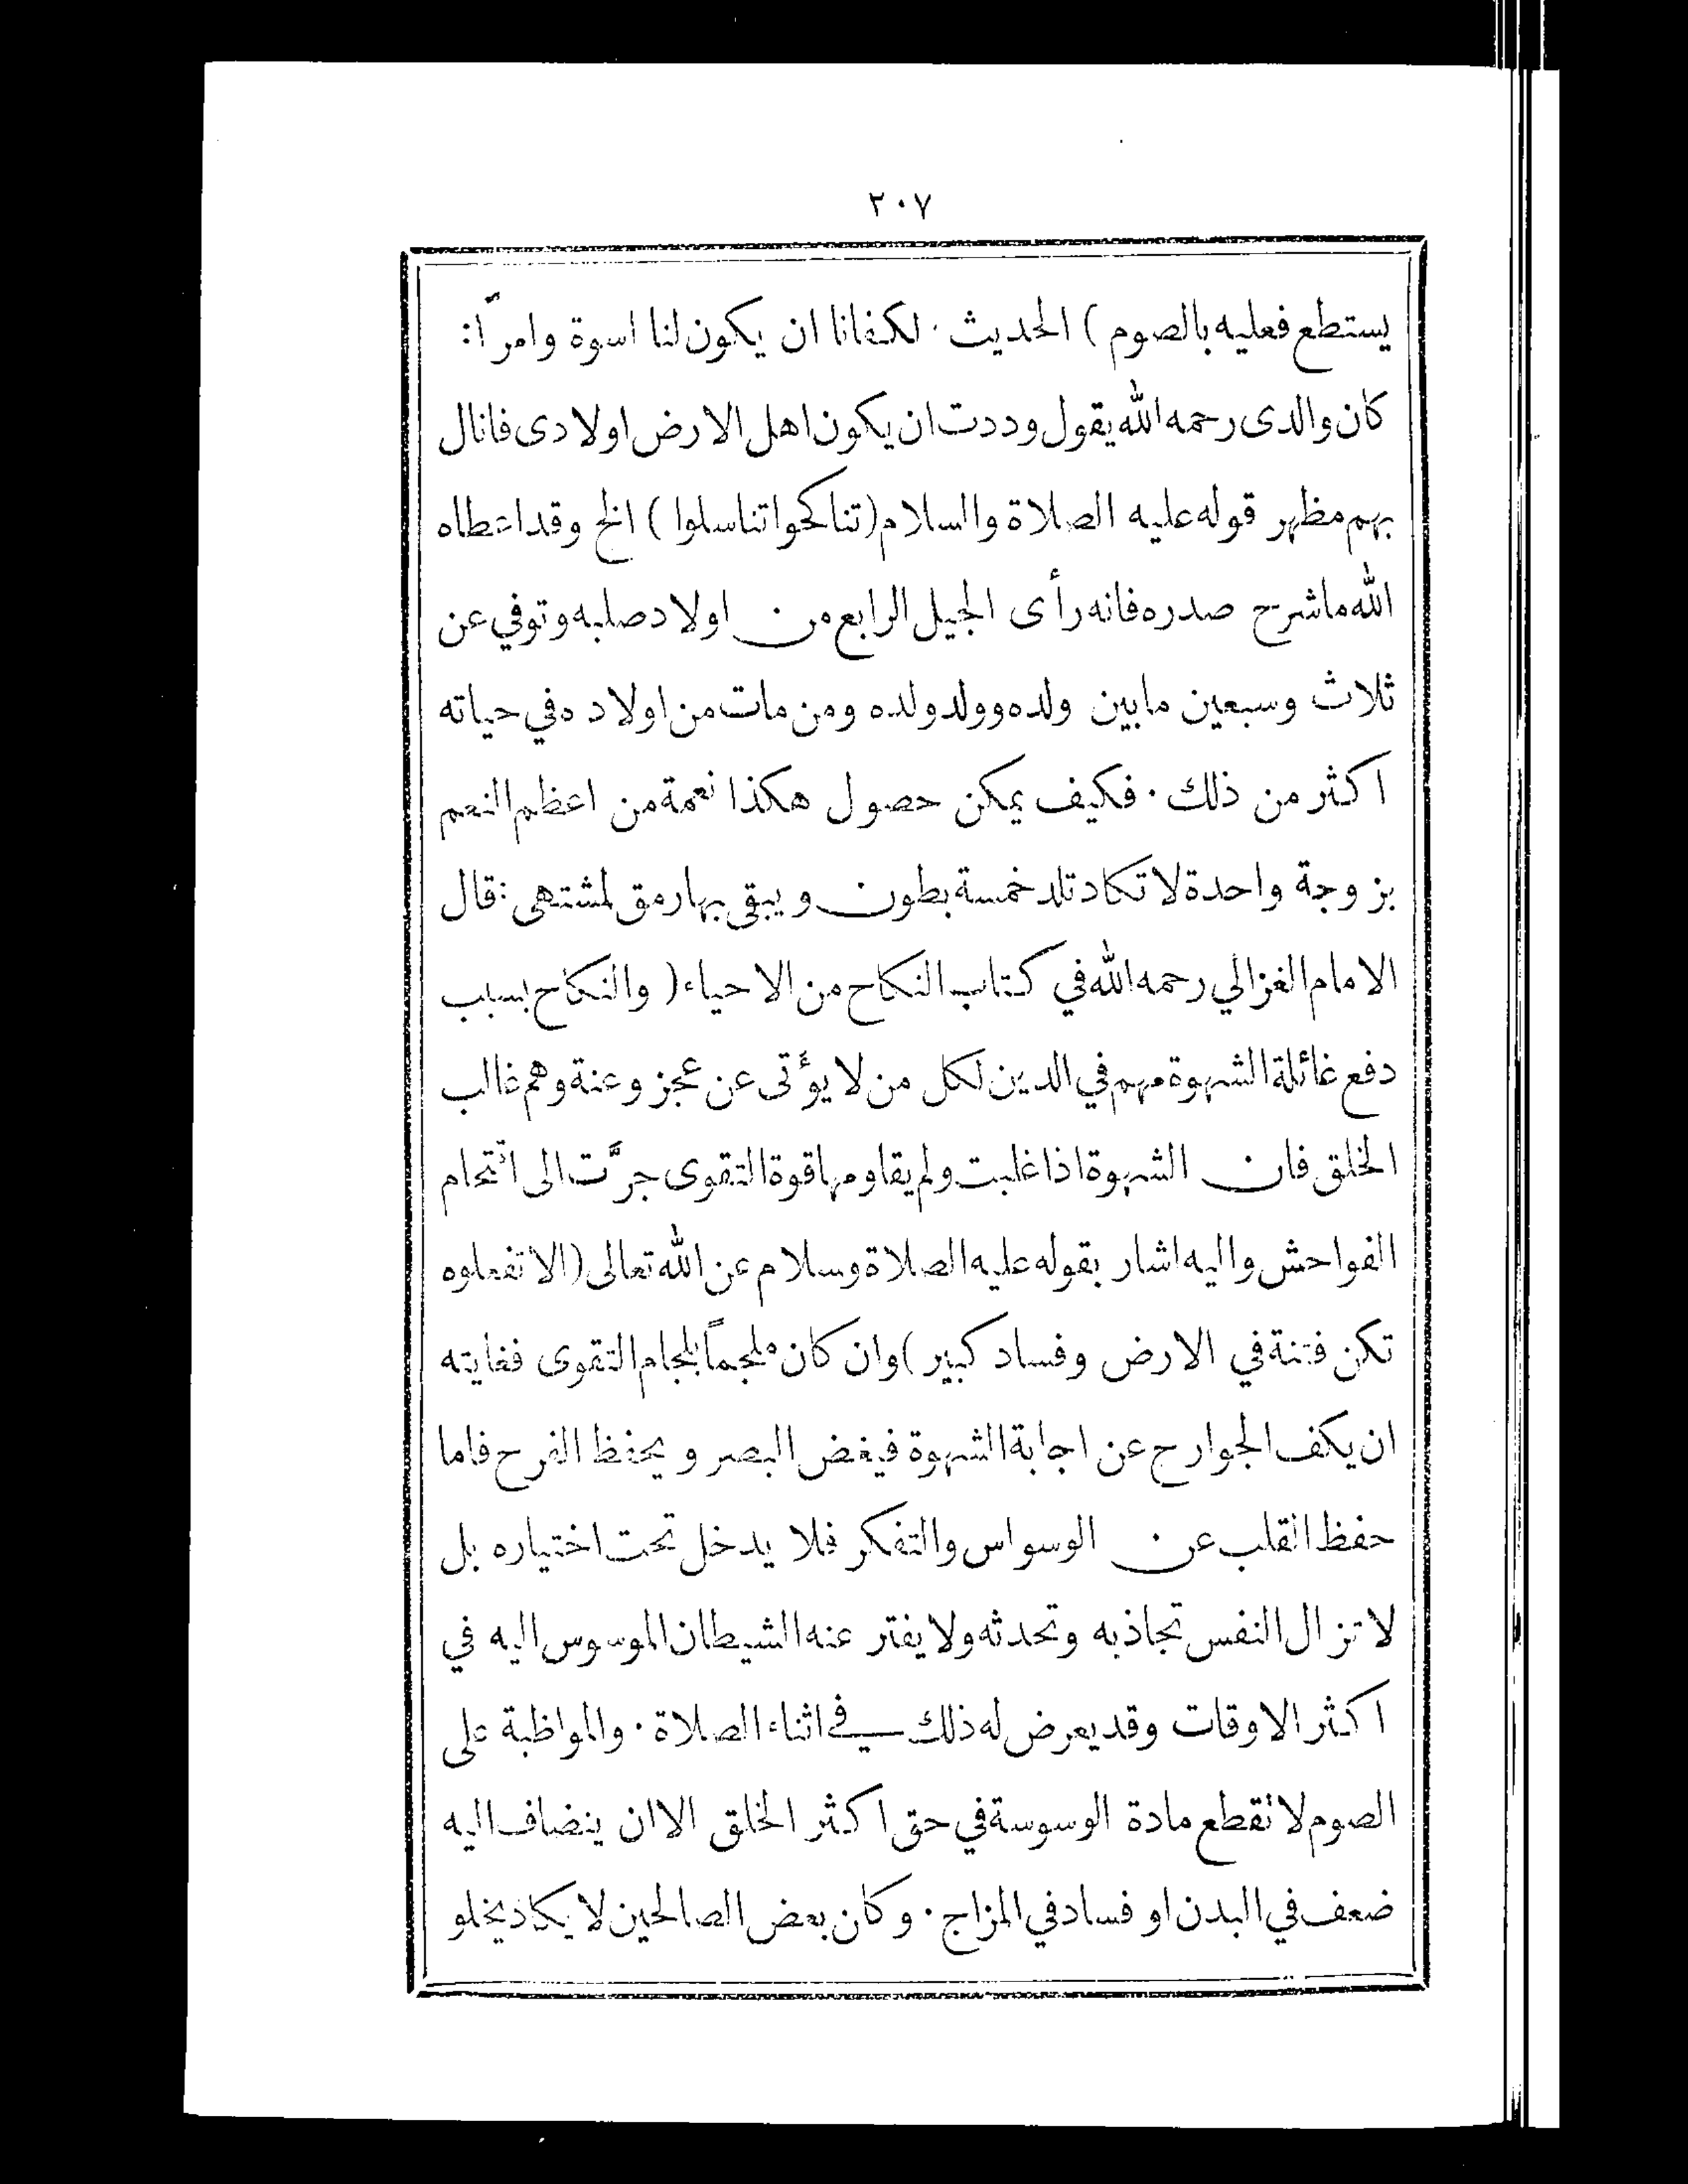 ٢٠٧
يستطع فعليه بالصوم ) الحديث . لكفانا ان يكون لنا اسوة وامرًّا:
كان والدى رحمه الله يقول وددت ان يكون اهل الارض اولادى فانال
بهم مظهر قوله عليه الصلاة والسلام (تناكحوا تناسلوا ) الخ وقد اعطاه
الله ماشرح صدره فانه رأى الجيل الرابع من اولاد صلبه وتوفي عن
ثلاث وسبعين مابين ولده وولد ولده ومن مات من اولاده في حياته
اكثر من ذلك . فكيف يمكن حصول هكذا نعمة من اعظم النعم
بزوجة واحدة لا تكاد تلد خمسة بطون ويبقى بها رمق لمشتهى : قال
الامام الغزالي رحمه الله في كتاب النكاح من الاحياء ( والنكاح بسبب
دفع غائلة الشهوة مهم في الدين لكل من لا يؤتى عن عجز وعنة وهم غالب
الخلق فان الشهوة اذا غلبت ولم يقاومها قوة التقوى جرَّت الى اقتحام
الفواحش واليه اشار بقوله عليه الصلاة وسلام عن الله تعالى (الا تفعلوه
تكن فتنة في الارض وفساد كبير ) وان كان ملجماً بلجام التقوى فغايته
ان يكف الجوارح عن اجابة الشهوة فيغض البصر ويحفظ الفرح فاما
حفظ القلب عن الوسواس والتفكر فلا يدخل تحت اختياره بل
لا تزال النفس تجاذبه وتحدثه ولا يفتر عنه الشيطان الموسوس اليه في
اكثر الاوقات وقد يعرض له ذلك في اثناء الصلاة . والمواظبة على
الصوم لا تقطع مادة الوسوسة في حق اكثر الخلق الا ان ينضاف اليه
ضعف في البدن او فساد في المزاج . وكان بعض الصالحين لا يكاد يخلو